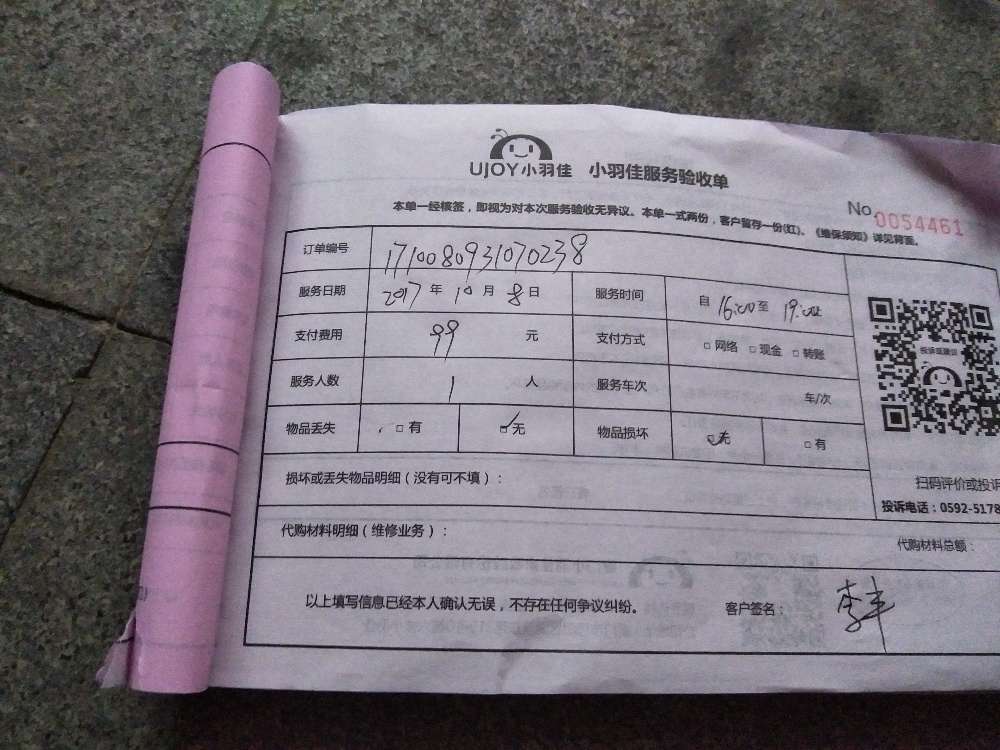 UJOY小羽佳 小羽佳服务验收单
No 0054461
本单一经核签，即视为对本次服务验收无异议。本单一式两份，客户留存一份(红)。《维保须知》详见背面。
订单编号 1710080931070238
服务日期 2017 年 10 月 8 日 服务时间 自 16:00 至 19:00
支付费用 99 元 支付方式 □ 网络 □ 现金 □ 转账
投诉或建议
服务人数 1 人 服务车次 车/次
物品丢失 □ 有 ☑无 物品损坏 ☑无 □ 有
损坏或丢失物品明细（没有可不填）：
扫码评价或投诉
投诉电话：0592-5178
代购材料明细（维修业务）：
代购材料总额：
以上填写信息已经本人确认无误，不存在任何争议纠纷。 客户签名： 李丰